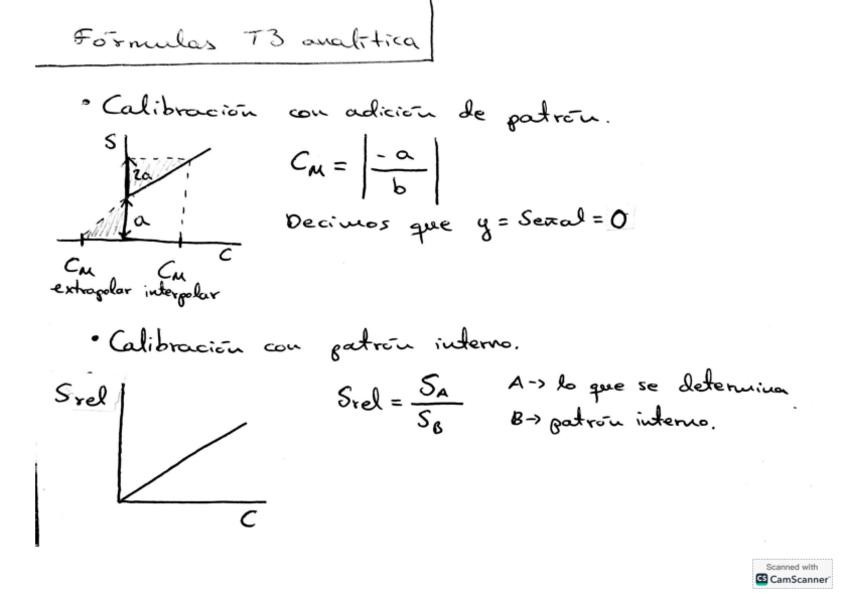 Fórmulas T3 analítica
• Calibración con adición de patrón.
S
2a
a
C
CM CM
extrapolar interpolar
CM = |-a/b|
Decimos que y = Señal = 0
• Calibración con patrón interno.
Srel
C
Srel = SA/SB
A -> lo que se determina
B -> patrón interno.
Scanned with
CS CamScanner